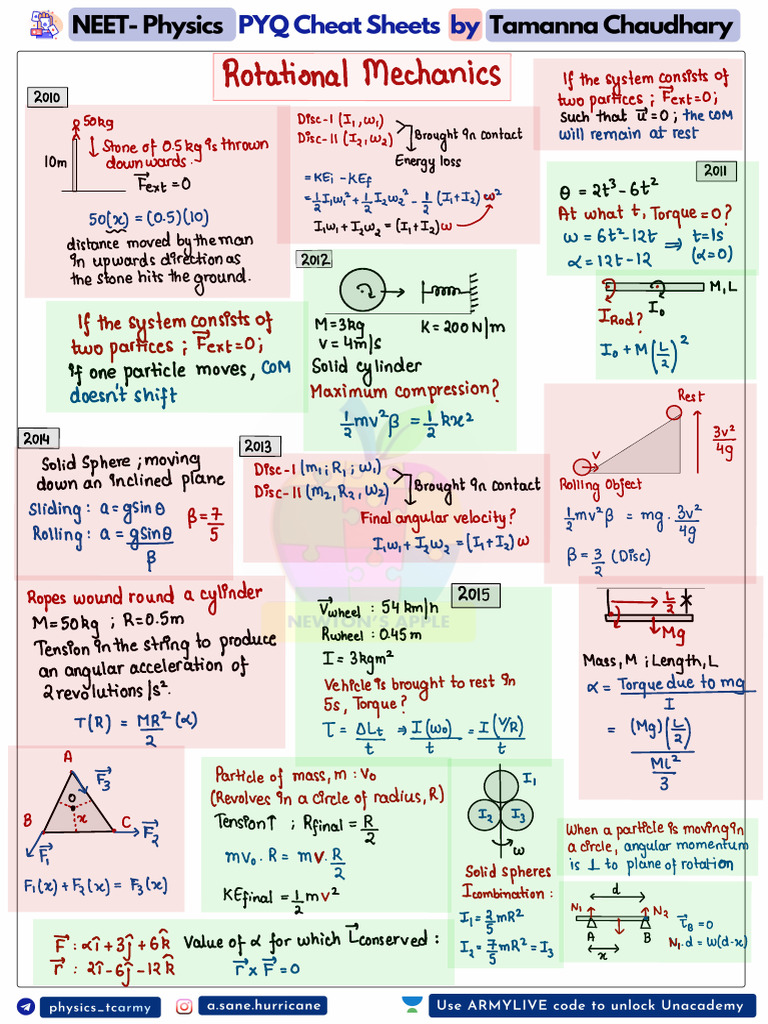 NEET- Physics PYQ Cheat Sheets by Tamanna Chaudhary
Rotational Mechanics
If the system consists of
two partices ; F⃗ext=0;
Such that u⃗=0; the COM
will remain at rest
2010
50kg
10m
↓ Stone of 0.5kg is thrown
downwards.
F⃗ext=0
50(x) = (0.5)(10)
distance moved by the man
in upwards direction as
the stone hits the ground.
Disc-I (I₁,ω₁)
Disc-II (I₂,ω₂)
Brought in contact
Energy loss
= KEi - KEf
= 1/2 I₁ω₁² + 1/2 I₂ω₂² - 1/2 (I₁+I₂) ω²
I₁ω₁+I₂ω₂ = (I₁+I₂)ω
2011
θ = 2t³-6t²
At what t, Torque=0?
ω = 6t²-12t ⇒ t=1s
α = 12t-12 (α=0)
M,L
I₀
IRod?
I₀ + M(L/2)²
If the system consists of
two partices ; F⃗ext=0;
if one particle moves, COM
doesn't shift
2012
M=3kg K=200N/m
v = 4m/s
Solid cylinder
Maximum compression?
1/2 mv²β = 1/2 kx²
Rest
v
3v²/4g
Rolling Object
1/2 mv²β = mg. 3v²/4g
β = 3/2 (Disc)
2014
Solid Sphere ; moving
down an inclined plane
Sliding : a=gsinθ
Rolling : a = gsinθ/β
β=7/5
2013
Disc-I (m₁;R₁;ω₁)
Disc-II (m₂,R₂,ω₂)
Brought in contact
Final angular velocity?
I₁ω₁+I₂ω₂ = (I₁+I₂)ω
NEWTON'S APPLE
Ropes wound round a cylinder
M=50kg ; R=0.5m
Tension in the string to produce
an angular acceleration of
2revolutions/s².
T(R) = MR²/2 (α)
2015
V⃗wheel : 54 km/h
Rwheel : 0.45m
I = 3kgm²
Vehicle is brought to rest in
5s, Torque?
τ = ΔLt/t ⇒ I(ω₀)/t = I(V/R)/t
L/2
Mg
Mass, M ; Length, L
α = Torque due to mg/I
= (Mg)(L/2)/(ML²/3)
A
F⃗₃
O
B
x
C
F⃗₂
F⃗₁
F₁(x) + F₂(x) = F₃(x)
Particle of mass, m : V₀
(Revolves in a circle of radius, R)
Tension↑ ; Rfinal = R/2
mv₀. R = mv. R/2
KEfinal = 1/2 mv²
I₁
I₂ I₃
ω
Solid spheres
Icombination :
I₁ = 2/5 mR²
I₂ = 7/5 mR² = I₃
When a particle is moving in
a circle, angular momentum
is ⊥ to plane of rotation
d
N₁ N₂
A B
x
τ⃗B = 0
N₁.d = W(d-x)
F⃗ : αî+3ĵ+6k̂ Value of α for which L⃗conserved :
r⃗ : 2î-6ĵ-12k̂ r⃗ x F⃗ = 0
physics_tcarmy a.sane.hurricane Use ARMYLIVE code to unlock Unacademy